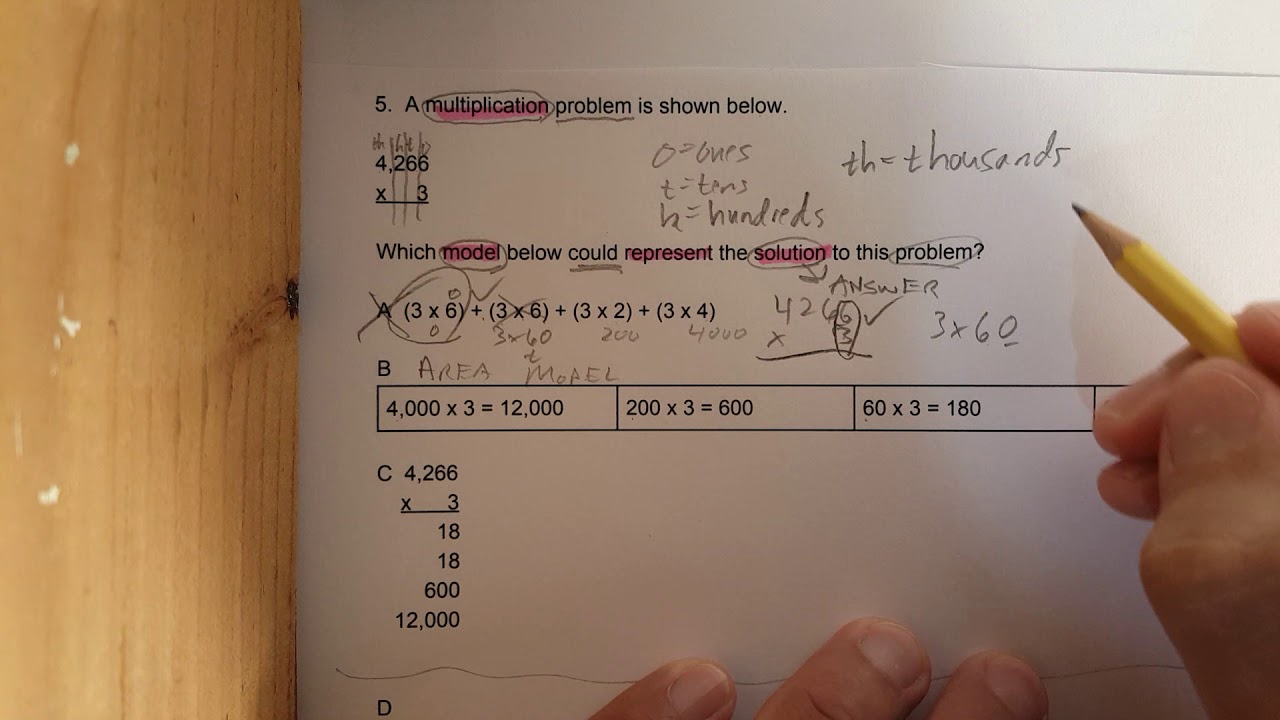 5. A multiplication problem is shown below.
th h t o
4,266
x 3
o = ones
t = tens
h = hundreds
th = thousands
Which model below could represent the solution to this problem?
ANSWER
A (3 x 6) + (3 x 6) + (3 x 2) + (3 x 4)
0
0
3x60
t
200
4000
4266
x 3
3x60
B AREA MODEL
4,000 x 3 = 12,000 200 x 3 = 600 60 x 3 = 180
C 4,266
x 3
18
18
600
12,000
D